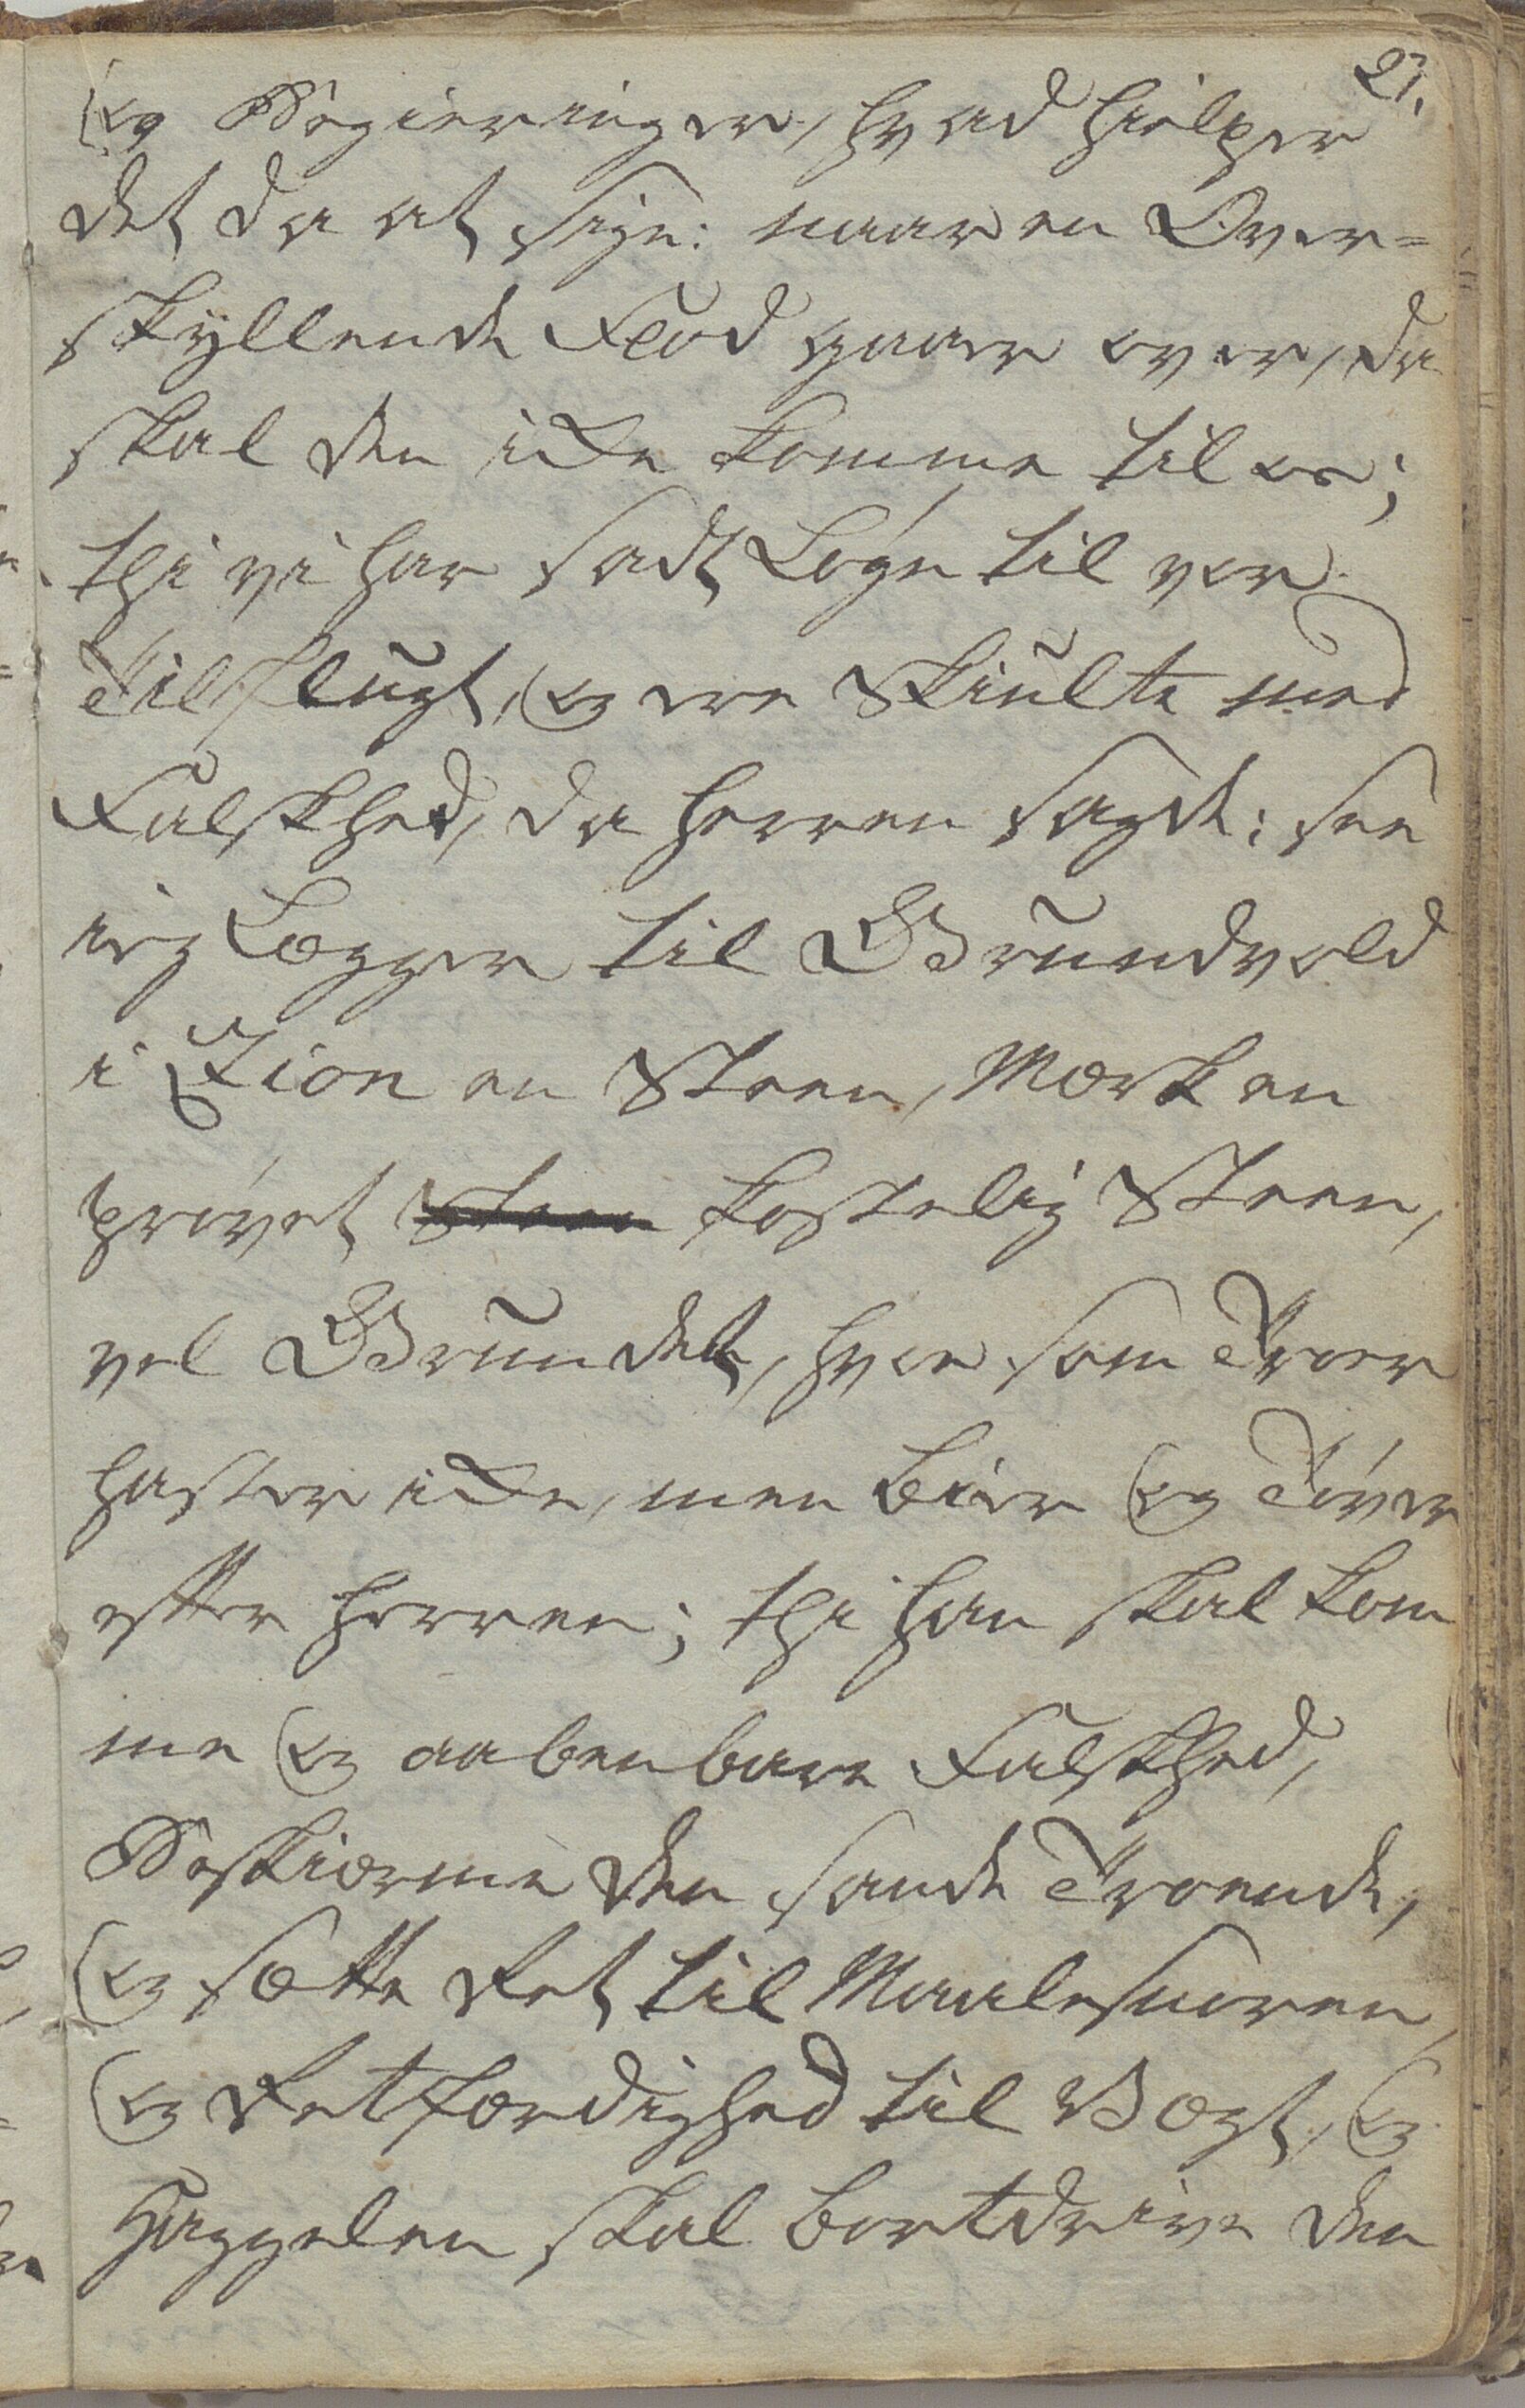 21.
og Begieringer, hvad hielper
det da at sige: naar en Over=
skyllende Flod gaaer over, da
skal den icke komme til os;
thi vi har sadt Løgn til vor
Tilflugt, og ere Skiulte med
Falskhed, da Herren sagde; see
ieg Lægger til Grundvold
i Zion en Steen, Mærk en
prøvet Steen kostelig Steen,
vel Grundet, hver som Troer
haster icke, men bier og Tøver
efter Herren; thi han skal kom
me og aabenbare Falskhed,
Beskiærme den sande Troende,
og sætte Ret til Maalesnoren,
og Retfærdighed til Vægt, og
Haggelen skal bortdrive den